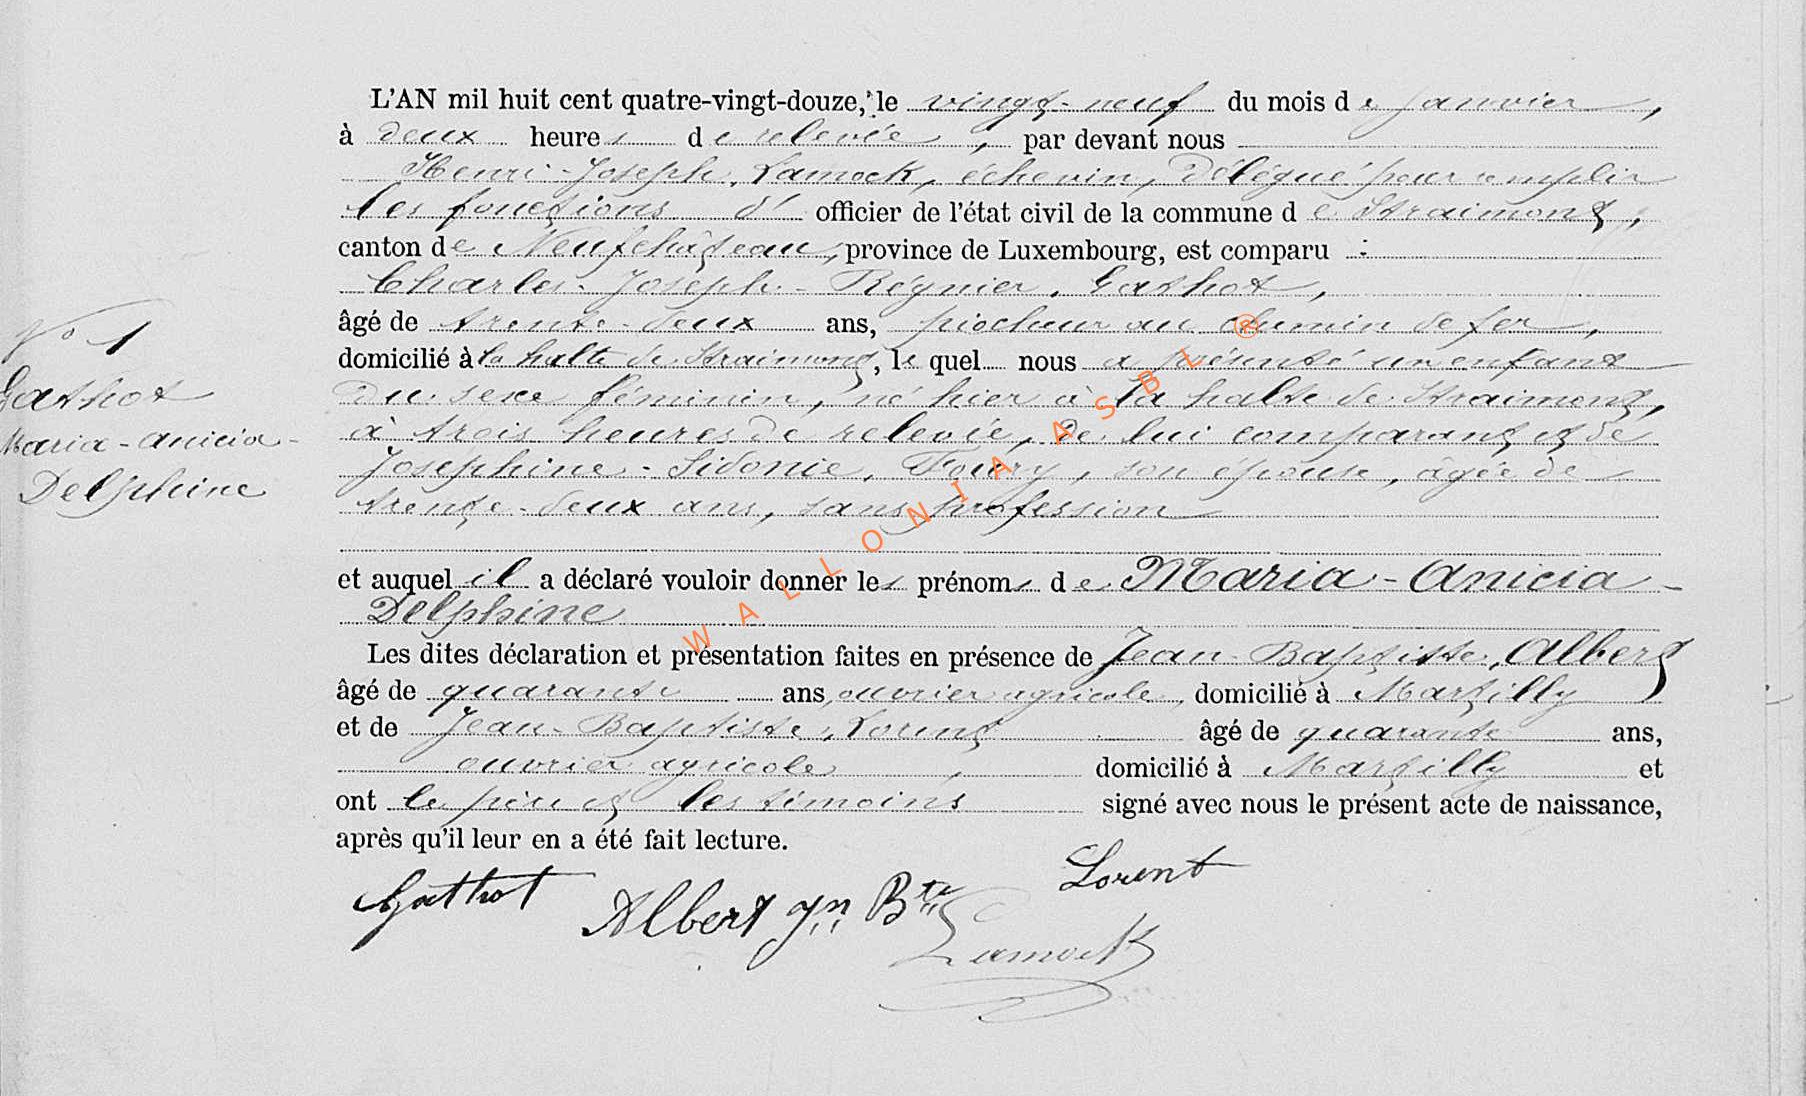 L'AN mil huit cent quatre-vingt-douze, le vingt-neuf du mois de janvier,
à deux heures de relevée, par devant nous
Henri-Joseph, Lamock, échevin, délégué pour remplir
les fonctions d' officier de l'état civil de la commune de Straimont,
canton de Neufchâteau, province de Luxembourg, est comparu :
Charles-Joseph-Régnier, Gathot,
âgé de trente-deux ans, piocheur au chemin de fer,
domicilié à la halte de Straimont, lequel nous a présenté un enfant
du sexe féminin, né hier à la halte de Straimont,
à trois heures de relevée, de lui comparant et de
Joséphine-Sidonie, Foury, son épouse, âgée de
trente-deux ans, sans profession
et auquel il a déclaré vouloir donner les prénoms de Maria-Anicia-
Delphine
Les dites déclaration et présentation faites en présence de Jean-Baptiste, Albert
âgé de quarante ans, ouvrier agricole, domicilié à Martilly
et de Jean-Baptiste, Lorent âgé de quarante ans,
ouvrier agricole, domicilié à Martilly et
ont le père et les témoins signé avec nous le présent acte de naissance,
après qu'il leur en a été fait lecture.
N° 1
Gathot
Maria-Anicia-
Delphine
Gathot Albert Jn Bte Lorent
Lamock
WALLONIA ASBL ®